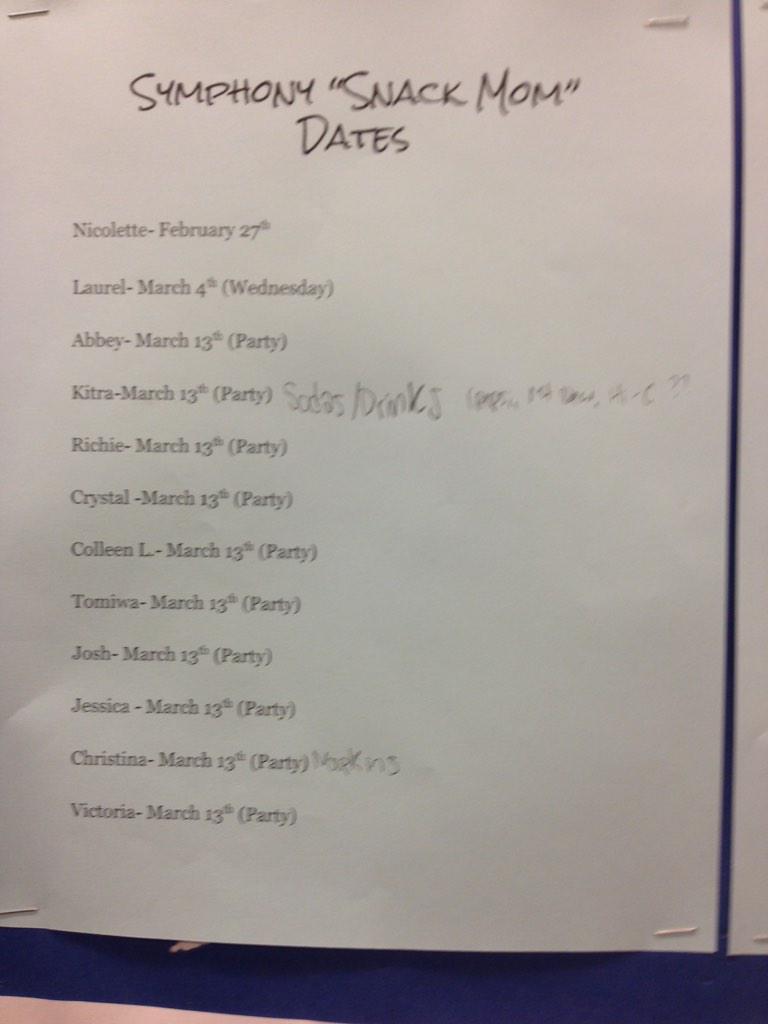 SYMPHONY "SNACK MOM"
DATES
Nicolette- February 27th
Laurel- March 4th (Wednesday)
Abbey- March 13th (Party)
Kitra-March 13th (Party) Sodas/Drinks
Richie- March 13th (Party)
Crystal -March 13th (Party)
Colleen L.- March 13th (Party)
Tomiwa- March 13th (Party)
Josh- March 13th (Party)
Jessica - March 13th (Party)
Christina- March 13th (Party) Napkins
Victoria- March 13th (Party)